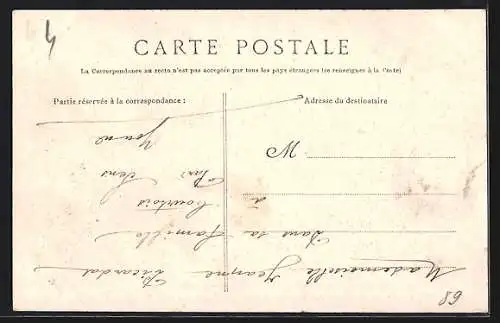 4
CARTE POSTALE
La Correspondance au recto n'est pas acceptée par tous les pays étrangers (se renseignez à la Poste)
Partie réservée à la correspondance :
Adresse du destinataire
M
Mademoiselle Jeanne Ricardat
Dans sa famille
à Courtois
Par Sens
Yonne
89